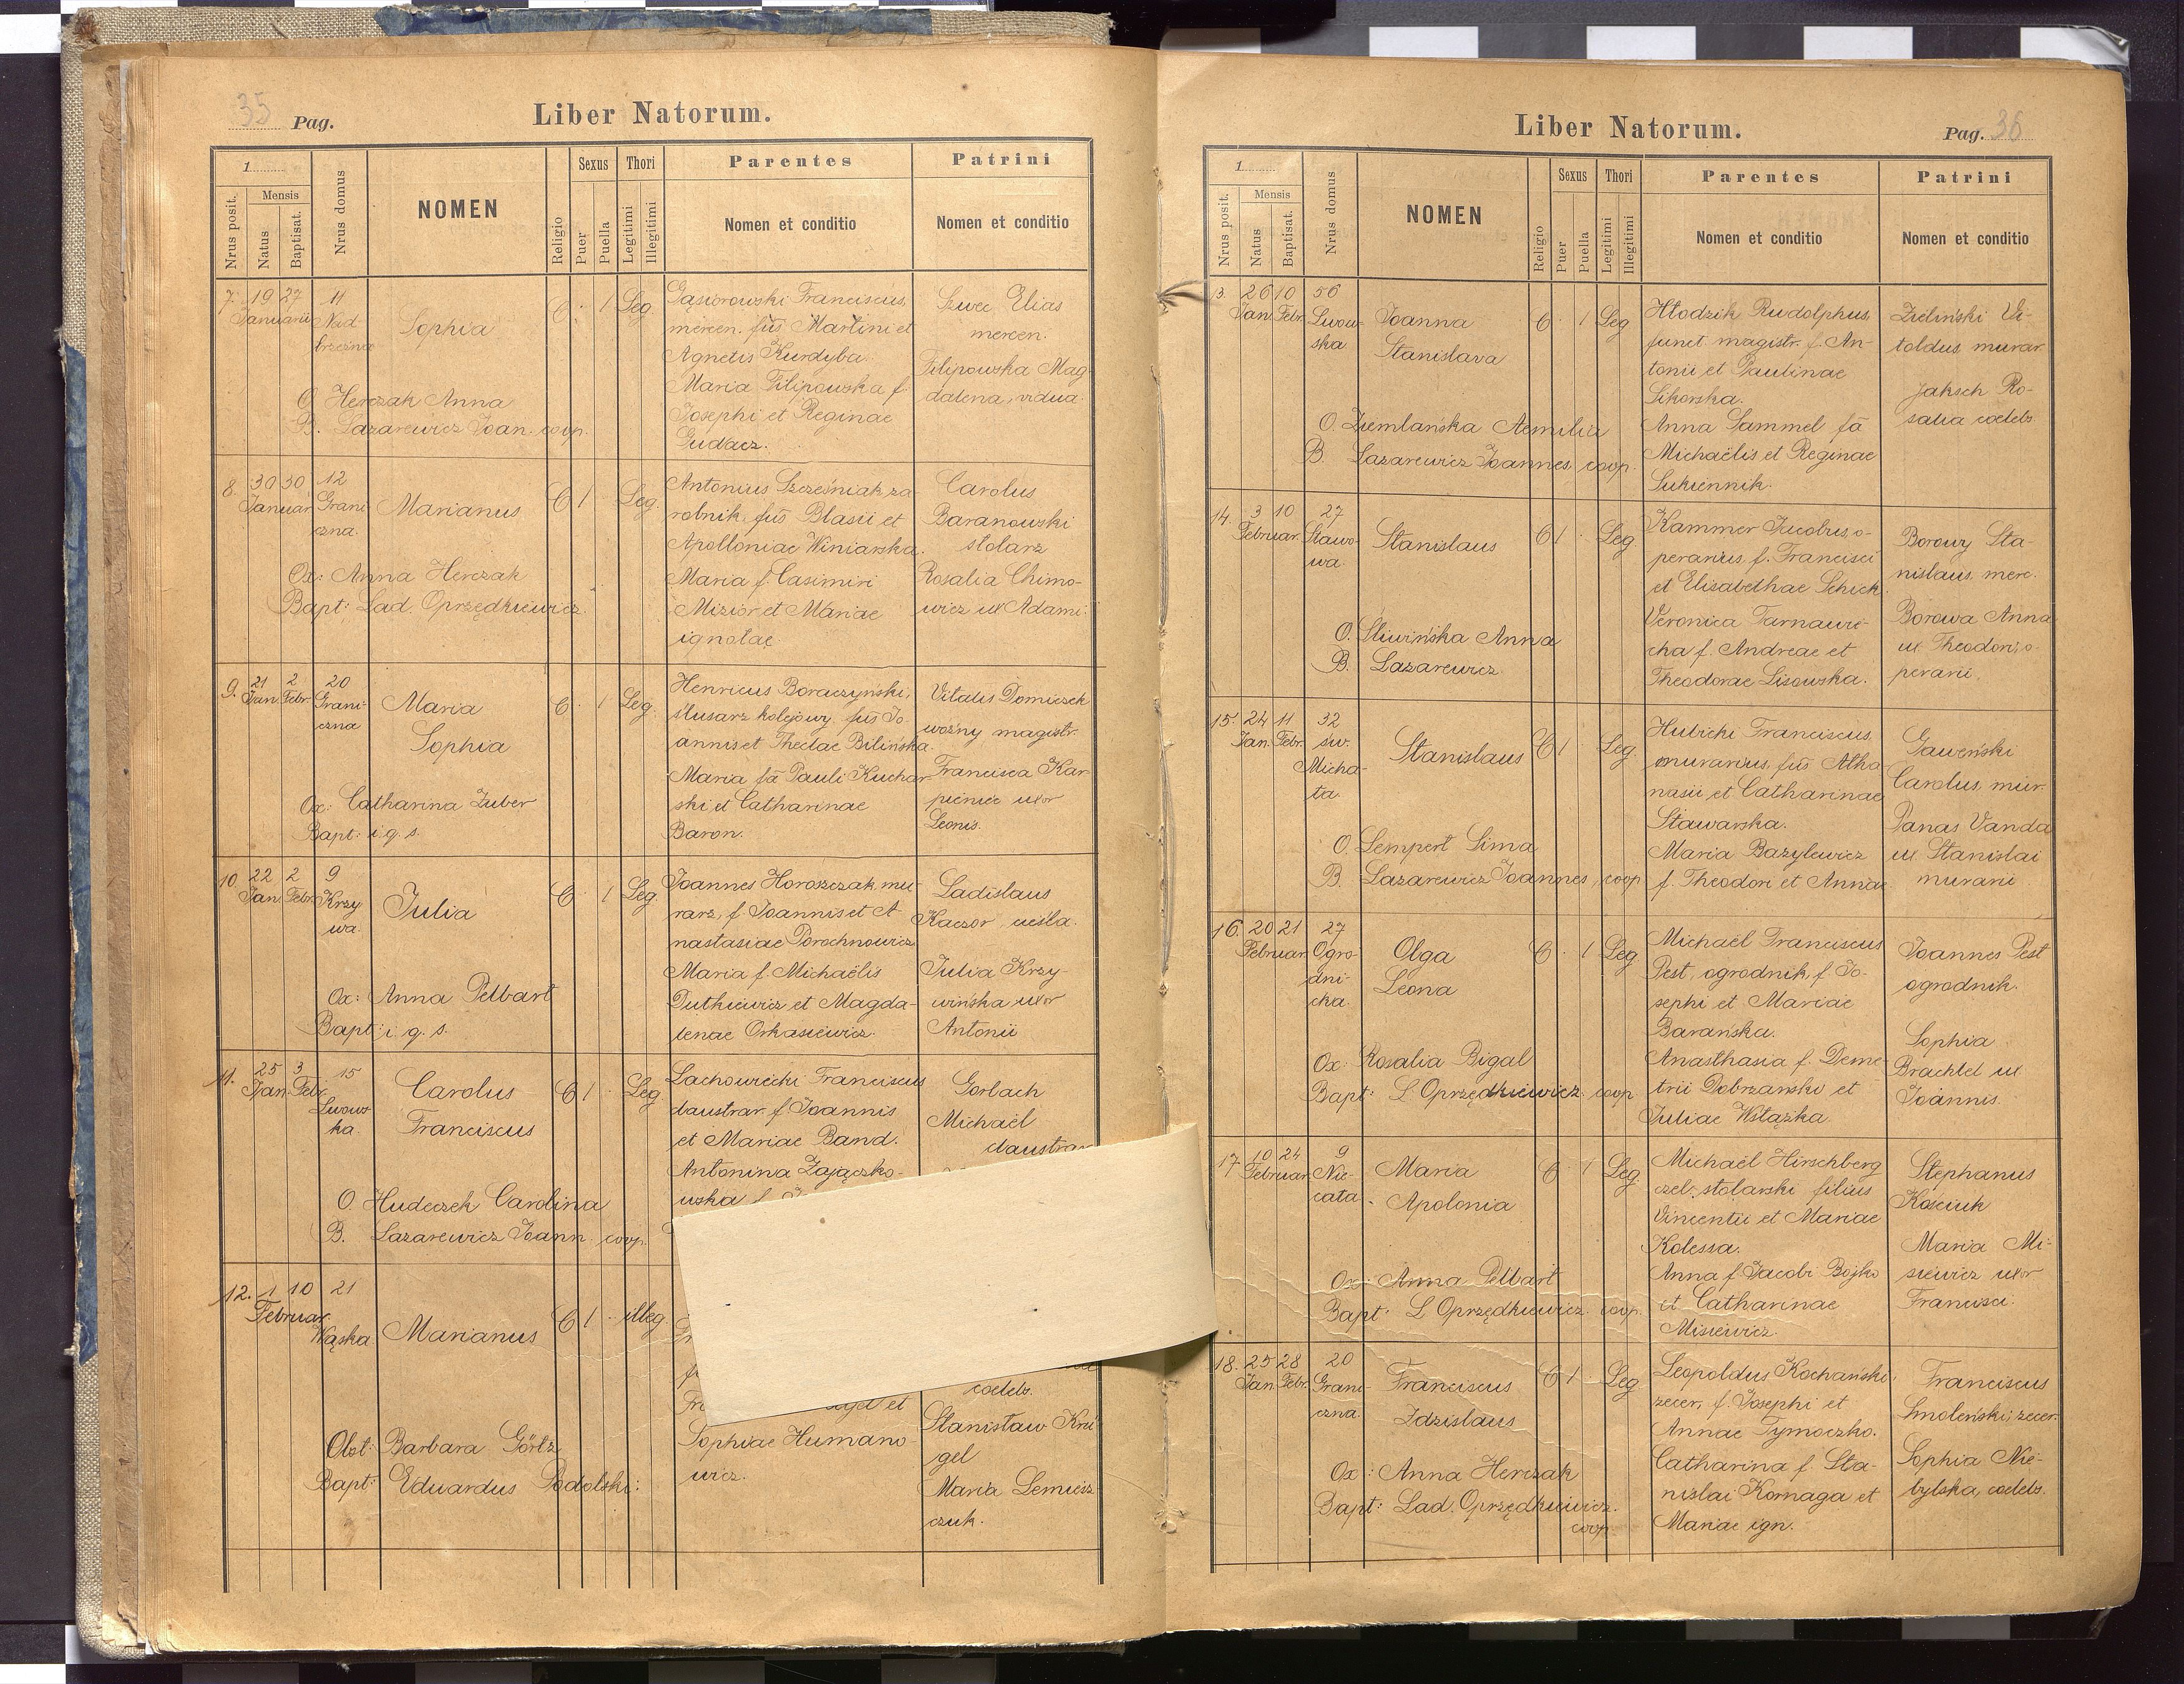 35 Pag.
Liber Natorum.
1
Nrus posit.
Mensis
Natus
Baptisat.
Nrus domus
NOMEN
Religio
Sexus
Puer
Puella
Thori
Legitimi
Illegitimi
Parentes
Nomen et conditio
Patrini
Nomen et conditio
7. 19 27 11
Januarii Nad
brzeżna
Sophia
C. 1 Leg.
O. Herczak Anna
B. Lazarewicz Joan. coop.
Gąsiorowski Franciscus,
mercen. fus Martini et
Agnetis Kurdyba.
Maria Filipowska f.
Josephi et Reginae
Gudacz.
Szwec Elias
mercen.
Filipowska Mag
dalena, vidua.
8. 30 30 12
Januar. Grani
czna.
Marianus
C 1 Leg.
Ox: Anna Herczak
Bapt: Lad. Oprzędkiewicz.
Antonius Szcześniak za
robnik, fus Blasii et
Apolloniae Winiarska.
Maria f Casimiri
Mizior et Mariae
ignotae.
Carolus
Baranowski
stolarz
Rosalia Chimo-
wicz ux Adami.
9. 21 2 20
Jan. Febr. Grani-
czna
Maria
Sophia
C. 1 Leg.
Ox: Catharina Zuber
Bapt: i. q. s.
Henricus Boraczyński,
ślusarz kolejowy fus Jo
annis et Theclae Bilińska.
Maria fa Pauli Kuchar
ski et Catharinae
Baron.
Vitalis Domiczek
woźny magistr.
Francisca Kar
pieniec uxor
Leonis.
10. 22 2 9
Jan. Febr. Krzy
wa.
Julia
C. 1 Leg.
Ox: Anna Pelbart
Bapt: i. q. s.
Joannes Horoszczak, mu-
rarz, f. Joannis et A
nastasiae Porochnowicz
Maria f. Michaëlis
Dutkiewicz et Magda-
lenae Orkasiewicz.
Ladislaus
Kaczor, cieśla.
Julia Krzy-
wińska, uxor
Antonii
11. 25 3 15
Jan. Febr.
Lwows-
ka.
Carolus
Franciscus
C 1 Leg
O. Hudeczek Carolina
B. Lazarewicz Joann. coop.
Lachowiecki Franciscus
claustrar. f. Joannis
et Mariae Band.
Antonina Zajączko-
wska f.
Gorlach
Michaël
claustrar
12. 1 10 21
Februar.
Wąska.
Marianus
C 1 illeg.
Obst: Barbara Görtz
Bapt: Eduardus Podolski.
et
Sophiae Humano-
wicz.
coelebs.
Stanisław Kru
gel
Maria Lemisz
czuk.
Liber Natorum.
Pag. 36
1
Nrus posit.
Mensis
Natus
Baptisat.
Nrus domus
NOMEN
Religio
Sexus
Puer
Puella
Thori
Legitimi
Illegitimi
Parentes
Nomen et conditio
Patrini
Nomen et conditio
13. 26 10 56
Jan. Febr. Lwow-
ska.
Joanna
Stanislava
C. 1 Leg
O. Ziemlańska Aemilia
B. Lazarewicz Joannes, coop.
Hłodzik Rudolphus,
funct. magistr. f. An-
tonii et Paulinae
Sikorska.
Anna Sammel fa
Michaëlis et Reginae
Sukiennik.
Zieliński Vi-
toldus, murar.
Jaksch Ro-
salia coelebs.
14. 3 10 27
Februar. Stawo-
wa.
Stanislaus
C 1 Leg
O. Śliwińska Anna
B. Lazarewicz
Kammer Jacobus, o-
perarius, f. Francisci
et Elisabethae Schick.
Veronica Tarnawie-
cka f. Andreae et
Theodorae Lisowska.
Borowy Sta-
nislaus, merc.
Borowa Anna
ux. Theodori, o-
perarii.
15. 24 11 32
Jan. Febr. św.
Micha-
ła.
Stanislaus
C 1 Leg.
O. Lempert Sima
B. Lazarewicz Joannes, coop
Hubicki Franciscus,
murarius, fus Atha
nasii et Catharinae
Stawarska.
Maria Bazylewicz
f. Theodori et Annae.
Gaweński
Carolus, mur.
Panas Vanda
ux. Stanislai
murarii
16. 20 21 27
Februar. Ogro-
dni-
cka.
Olga
Leona
C. 1 Leg
Ox: Rosalia Bigal
Bapt: L. Oprzędkiewicz. coop.
Michaël Franciscus
Pest, ogrodnik, f. Jo-
sephi et Mariae
Barańska.
Anasthasia f. Deme-
trii Dobrzański et
Juliae Wstążka.
Joannes Pest
ogrodnik.
Sophia
Brachtel ux
Joannis.
17. 10 24 9
Februar. Nie-
cała.
Maria
Apolonia
C. 1 Leg.
Ox: Anna Pelbart
Bapt: L. Oprzędkiewicz. coop.
Michaël Hirschberg
czel. stolarski filius
Vincentii et Mariae
Kolessa.
Anna f. Jacobi Bojko
et Catharinae
Misiewicz.
Stephanus
Kościuk
Maria Mi-
siewicz uxor
Francisci.
18. 25 28 20
Jan. Febr. Grani-
czna.
Franciscus
Zdzislaus
C 1 Leg
Ox: Anna Herczak
Bapt: Lad. Oprzędkiewicz.
coop
Leopoldus Kochański,
zecer, f. Josephi et
Annae Tymoczko.
Catharina f. Sta-
nislai Kornaga et
Mariae ign.
Franciscus
Smoleński, zecer.
Sophia Nie-
bylska, coelebs.